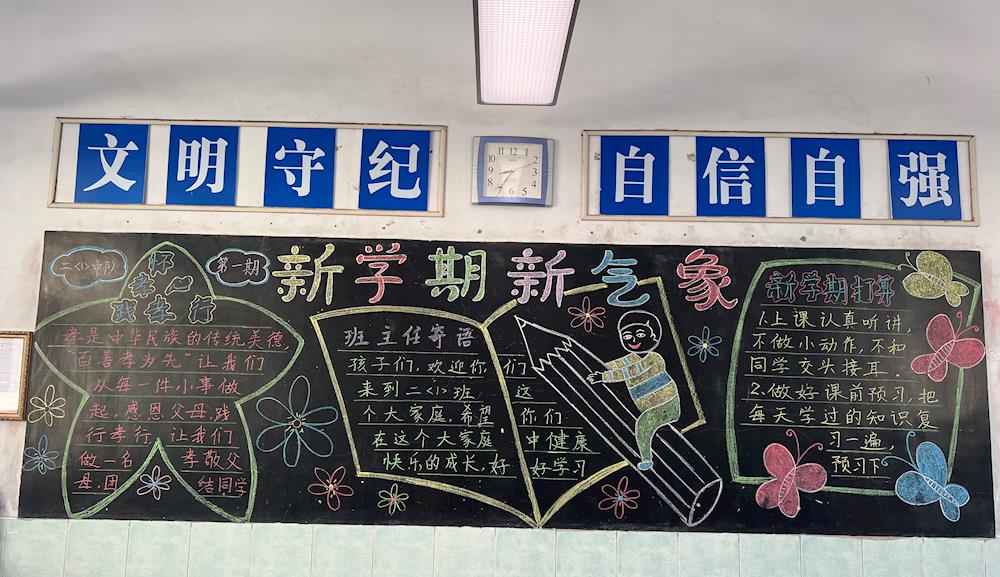 文明守纪
自信自强
二<1>中队
第一期
新学期新气象
怀
孝心
践孝行
孝是中华民族的传统美德,
"百善孝为先"让我们
从每一件小事做
起,感恩父母,践
行孝行,让我们
做一名 孝敬父
母,团 结同学
班主任寄语
孩子们,欢迎你们
来到二<1>班 这
个大家庭,希望 你们
在这个大家庭 中健康
快乐的成长,好 好学习
新学期打算
1.上课认真听讲,
不做小动作,不和
同学交头接耳
2.做好课前预习,把
每天学过的知识复
习一遍,
预习下